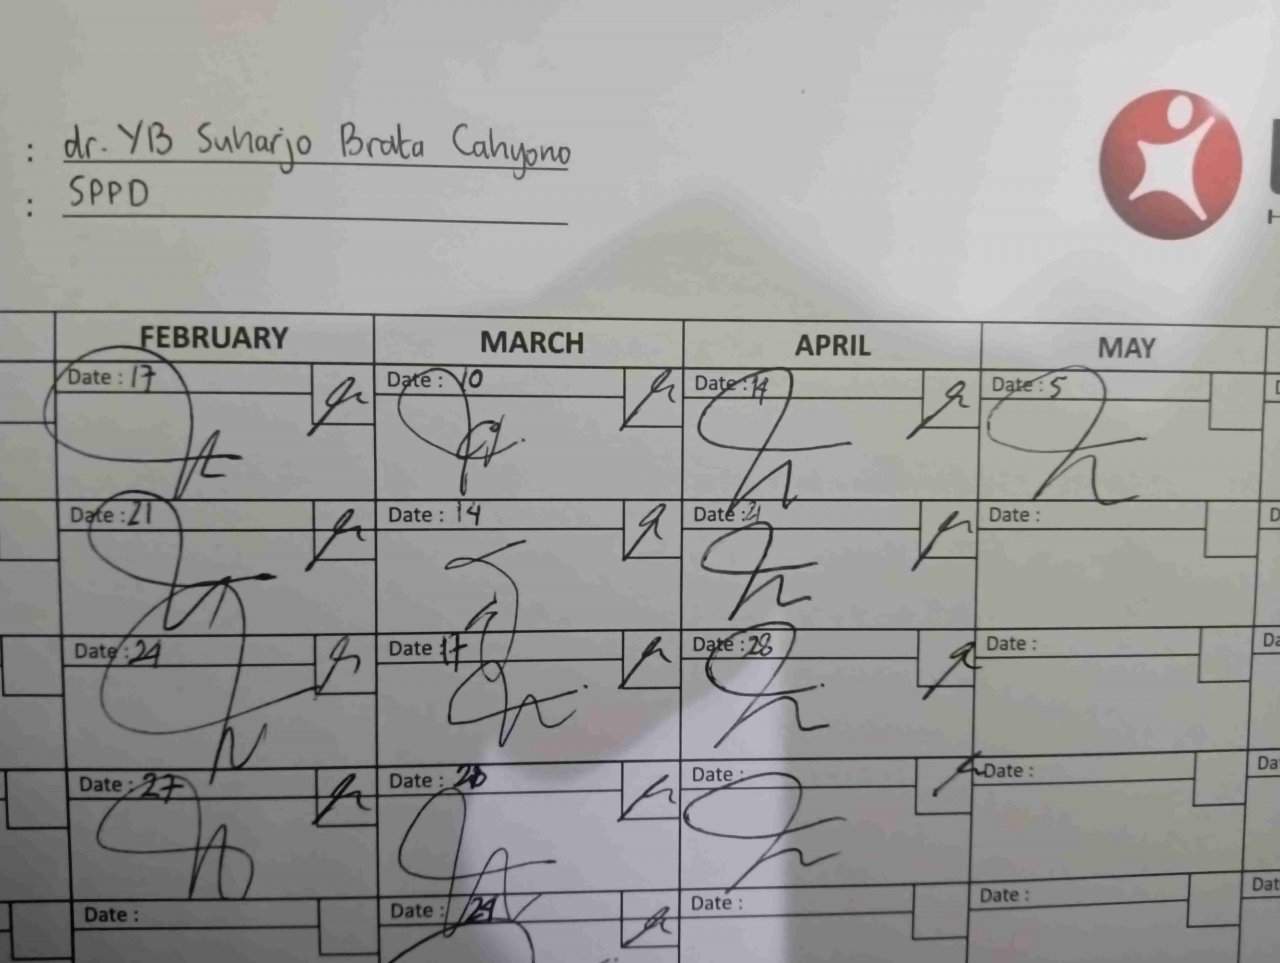 : dr. YB Suharjo Brata Cahyono
: SPPD
H
FEBRUARY MARCH APRIL MAY
Date : 17 Date : 10 Date : 14 Date : 5
Date : 21 Date : 14 Date : 21 Date :
Date : 24 Date : 17 Date : 28 Date :
Date : 27 Date : Date : Date :
Date : Date : 24 Date : Date :